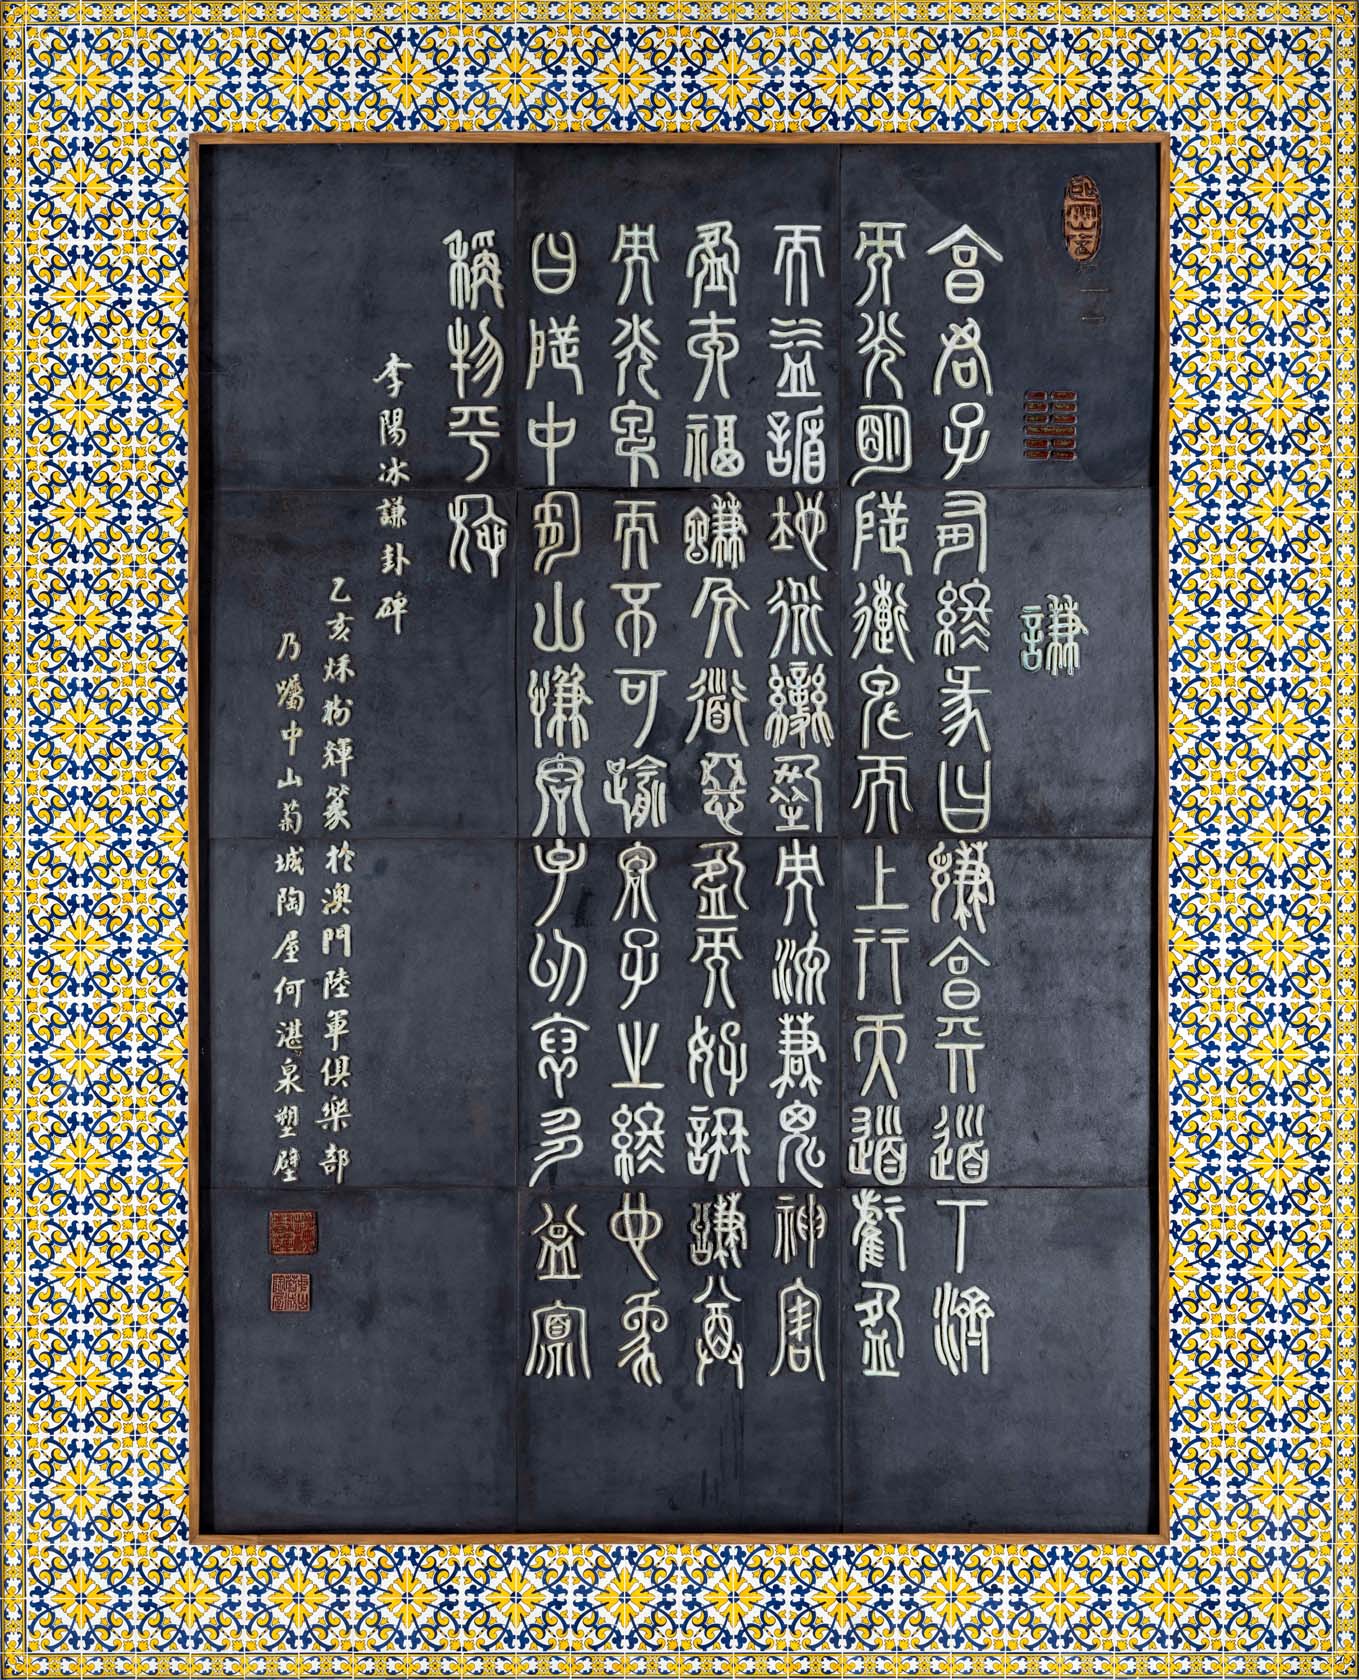 謙
亨君子有終彖曰謙亨天道下濟
而光明地道卑而上行天道虧盈
而益謙地道變盈而流謙鬼神害
盈而福謙人道惡盈而好謙謙尊
而光卑而不可踰君子之終也象
曰地中有山謙君子以裒多益寡
稱物平施
李陽冰謙卦碑
乙亥秌輝篆於澳門陸軍俱樂部
乃囑中山菊城陶屋何湛泉塑壁